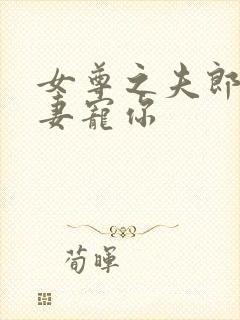 女尊之夫郎
妻宠你
荀晖